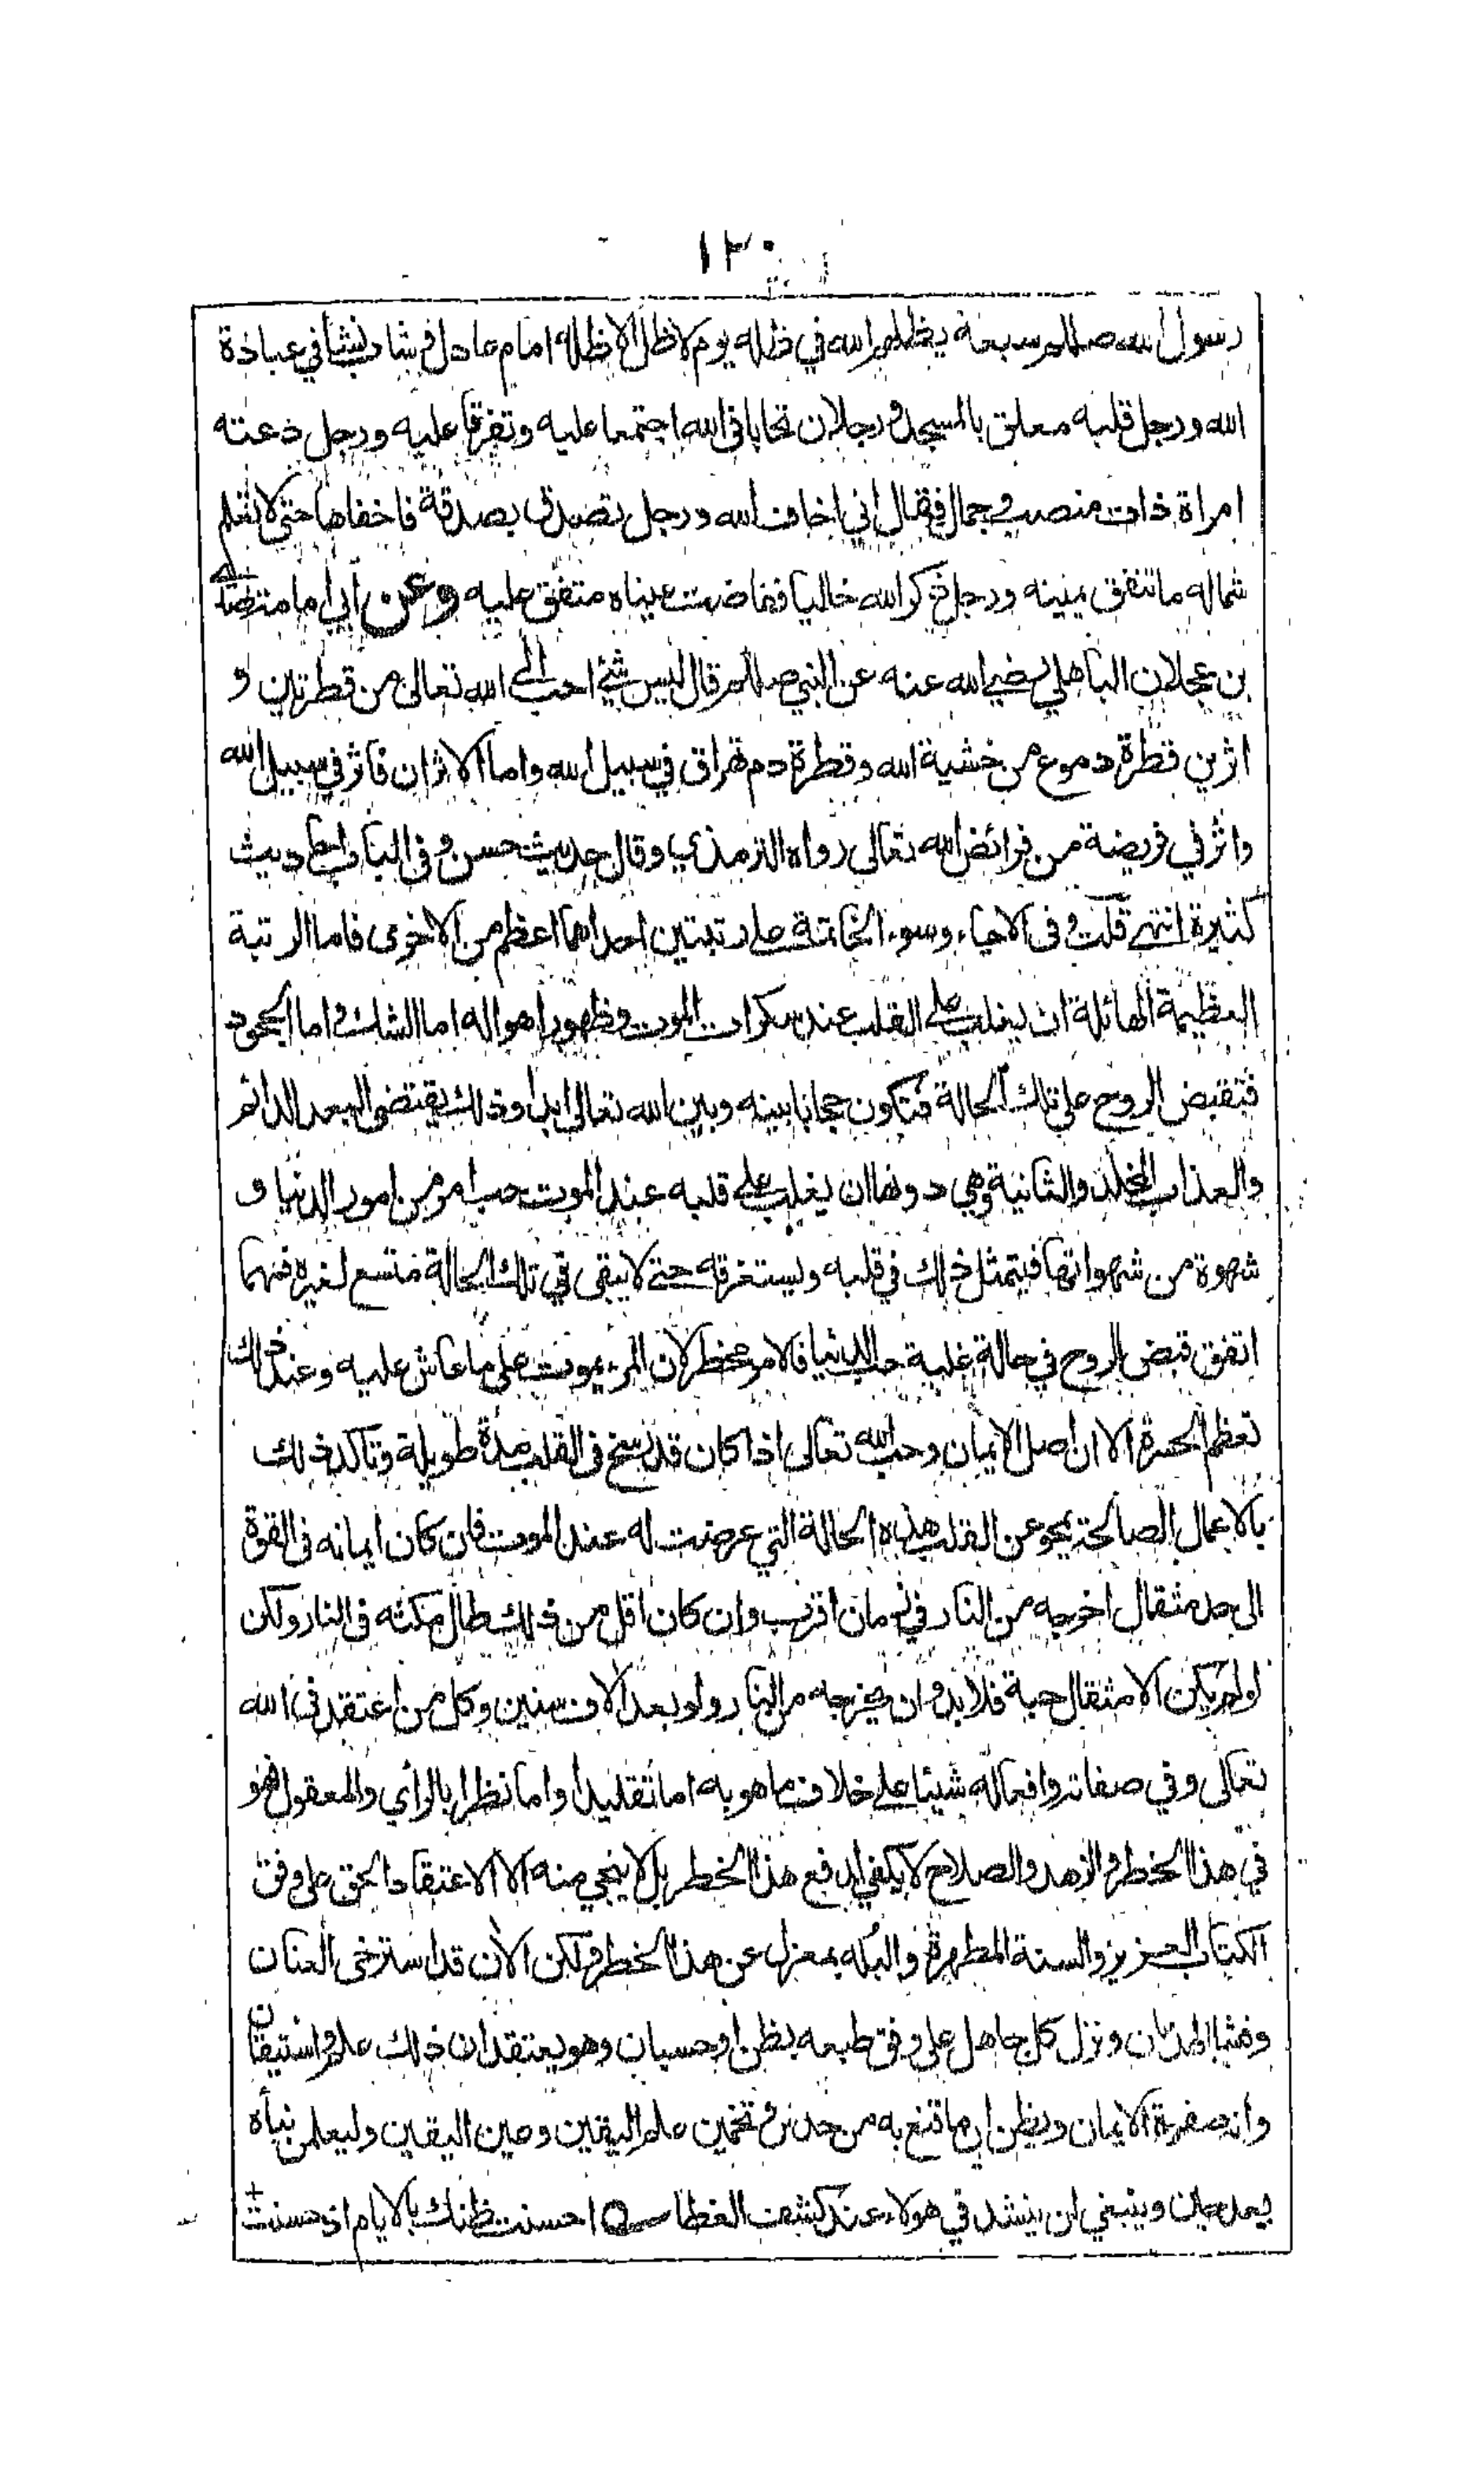 ١٢٠
رسول الله صللم سبعة يظلهم الله في ظله يوم لا ظل الا ظله امام عادل وشاب نشأ في عبادة
الله ورجل قلبه معلق بالمسجد ورجلان تحابا في الله اجتمعا عليه وتفرقا عليه ورجل دعته
امراة ذات منصب وجمال فقال اني اخاف الله ورجل تصدق بصدقة فاخفاها حتى لا تعلم
شماله ما تنفق يمينه ورجل ذكر الله خاليا ففاضت عيناه متفق عليه وعن ابي امامة صدي
بن عجلان الباهلي رضي الله عنه عن النبي صللم قال ليس شئ احب الى الله تعالى من قطرتين و
اثرين قطرة دموع من خشية الله وقطرة دم تهراق في سبيل الله واما الاثران فاثر في سبيل الله
واثر في فريضة من فرائض الله تعالى رواه الترمذي وقال حديث حسن وفى الباب احاديث
كثيرة انتهى قلت وفى الاحياء وسوء الخاتمة على رتبتين احداهما اعظم من الاخرى فاما الرتبة
العظيمة الهائلة ان يغلب على القلب عند سكرات الموت وظهور اهواله اما الشك واما الجحود
فتقبض الروح على تلك الحالة فتكون حجابا بينه وبين الله تعالى ابدا وذلك يقتضى البعد الدائم
والعذاب المخلد والثانية وهي دونها ان يغلب على قلبه عند الموت حب امر من امور الدنيا و
شهوة من شهواتها فيتمثل ذلك في قلبه ويستغرقه حتى لا يبقى في تلك الحالة متسع لغيره فمهما
اتفق قبض الروح في حالة غلبة حب الدنيا فالامر مخطر لان المرء يموت على ما عاش عليه وعند ذلك
تعظم الحسرة الا ان اصل الايمان وحب الله تعالى اذا كان قد رسخ فى القلب مدة طويلة وتأكد ذلك
بالاعمال الصالحة يمحو عن القلب هذه الحالة التي عرضت له عند الموت فان كان ايمانه فى القوة
الى حد مثقال اخرجه من النار في زمان اقرب وان كان اقل من ذلك طال مكثه فى النار ولكن
لو لم يكن الا مثقال حبة فلا بد وان يخرجه من النار ولو بعد الاف سنين وكل من اعتقد فى الله
تعالى وفي صفاته وافعاله شيئا على خلاف ما هو به اما تقليدا واما نظرا بالرأي والمعقول فهو
في هذا الخطر والزهد والصلاح لا يكفي لدفع هذا الخطر بل لا ينجي منه الا الاعتقاد الحق على وفق
الكتاب العزيز والسنة المطهرة والبُله بمعزل عن هذا الخطر ولكن الان قد استرخى العنان
وفشا الهذيان ونزل كل جاهل على وفق طبعه بظن او حسبان وهو يعتقد ان ذلك علم واستيقان
وانه صفوة الايمان ويظن ان ما وقع به من حدس وتخمين علم اليقين وعين اليقين وليعلمن نبأه
بعد حين وينبغي ان ينشد في هولاء عند كشف الغطا احسنت ظنك بالايام اذ حسنت